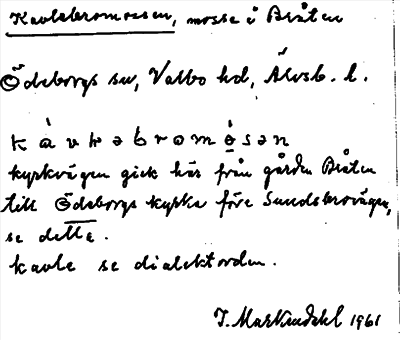 Kavlebromossen, mosse i Bråten
Ödeborgs sn, Valbo hd, Älvsb. l.
kyrkvägen gick här från gården Bråten
till Ödeborgs kyrka före Sundsbrovägen,
se detta.
kavle se dialektorden.
J. Markendahl 1961